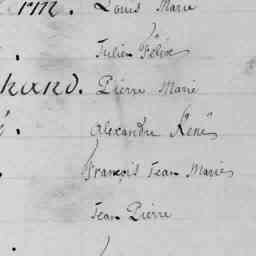 rm. Louis Marie
Julien Félix
hard. Pierre Marie
Alexandre René
François Jean Marie
Jean Pierre